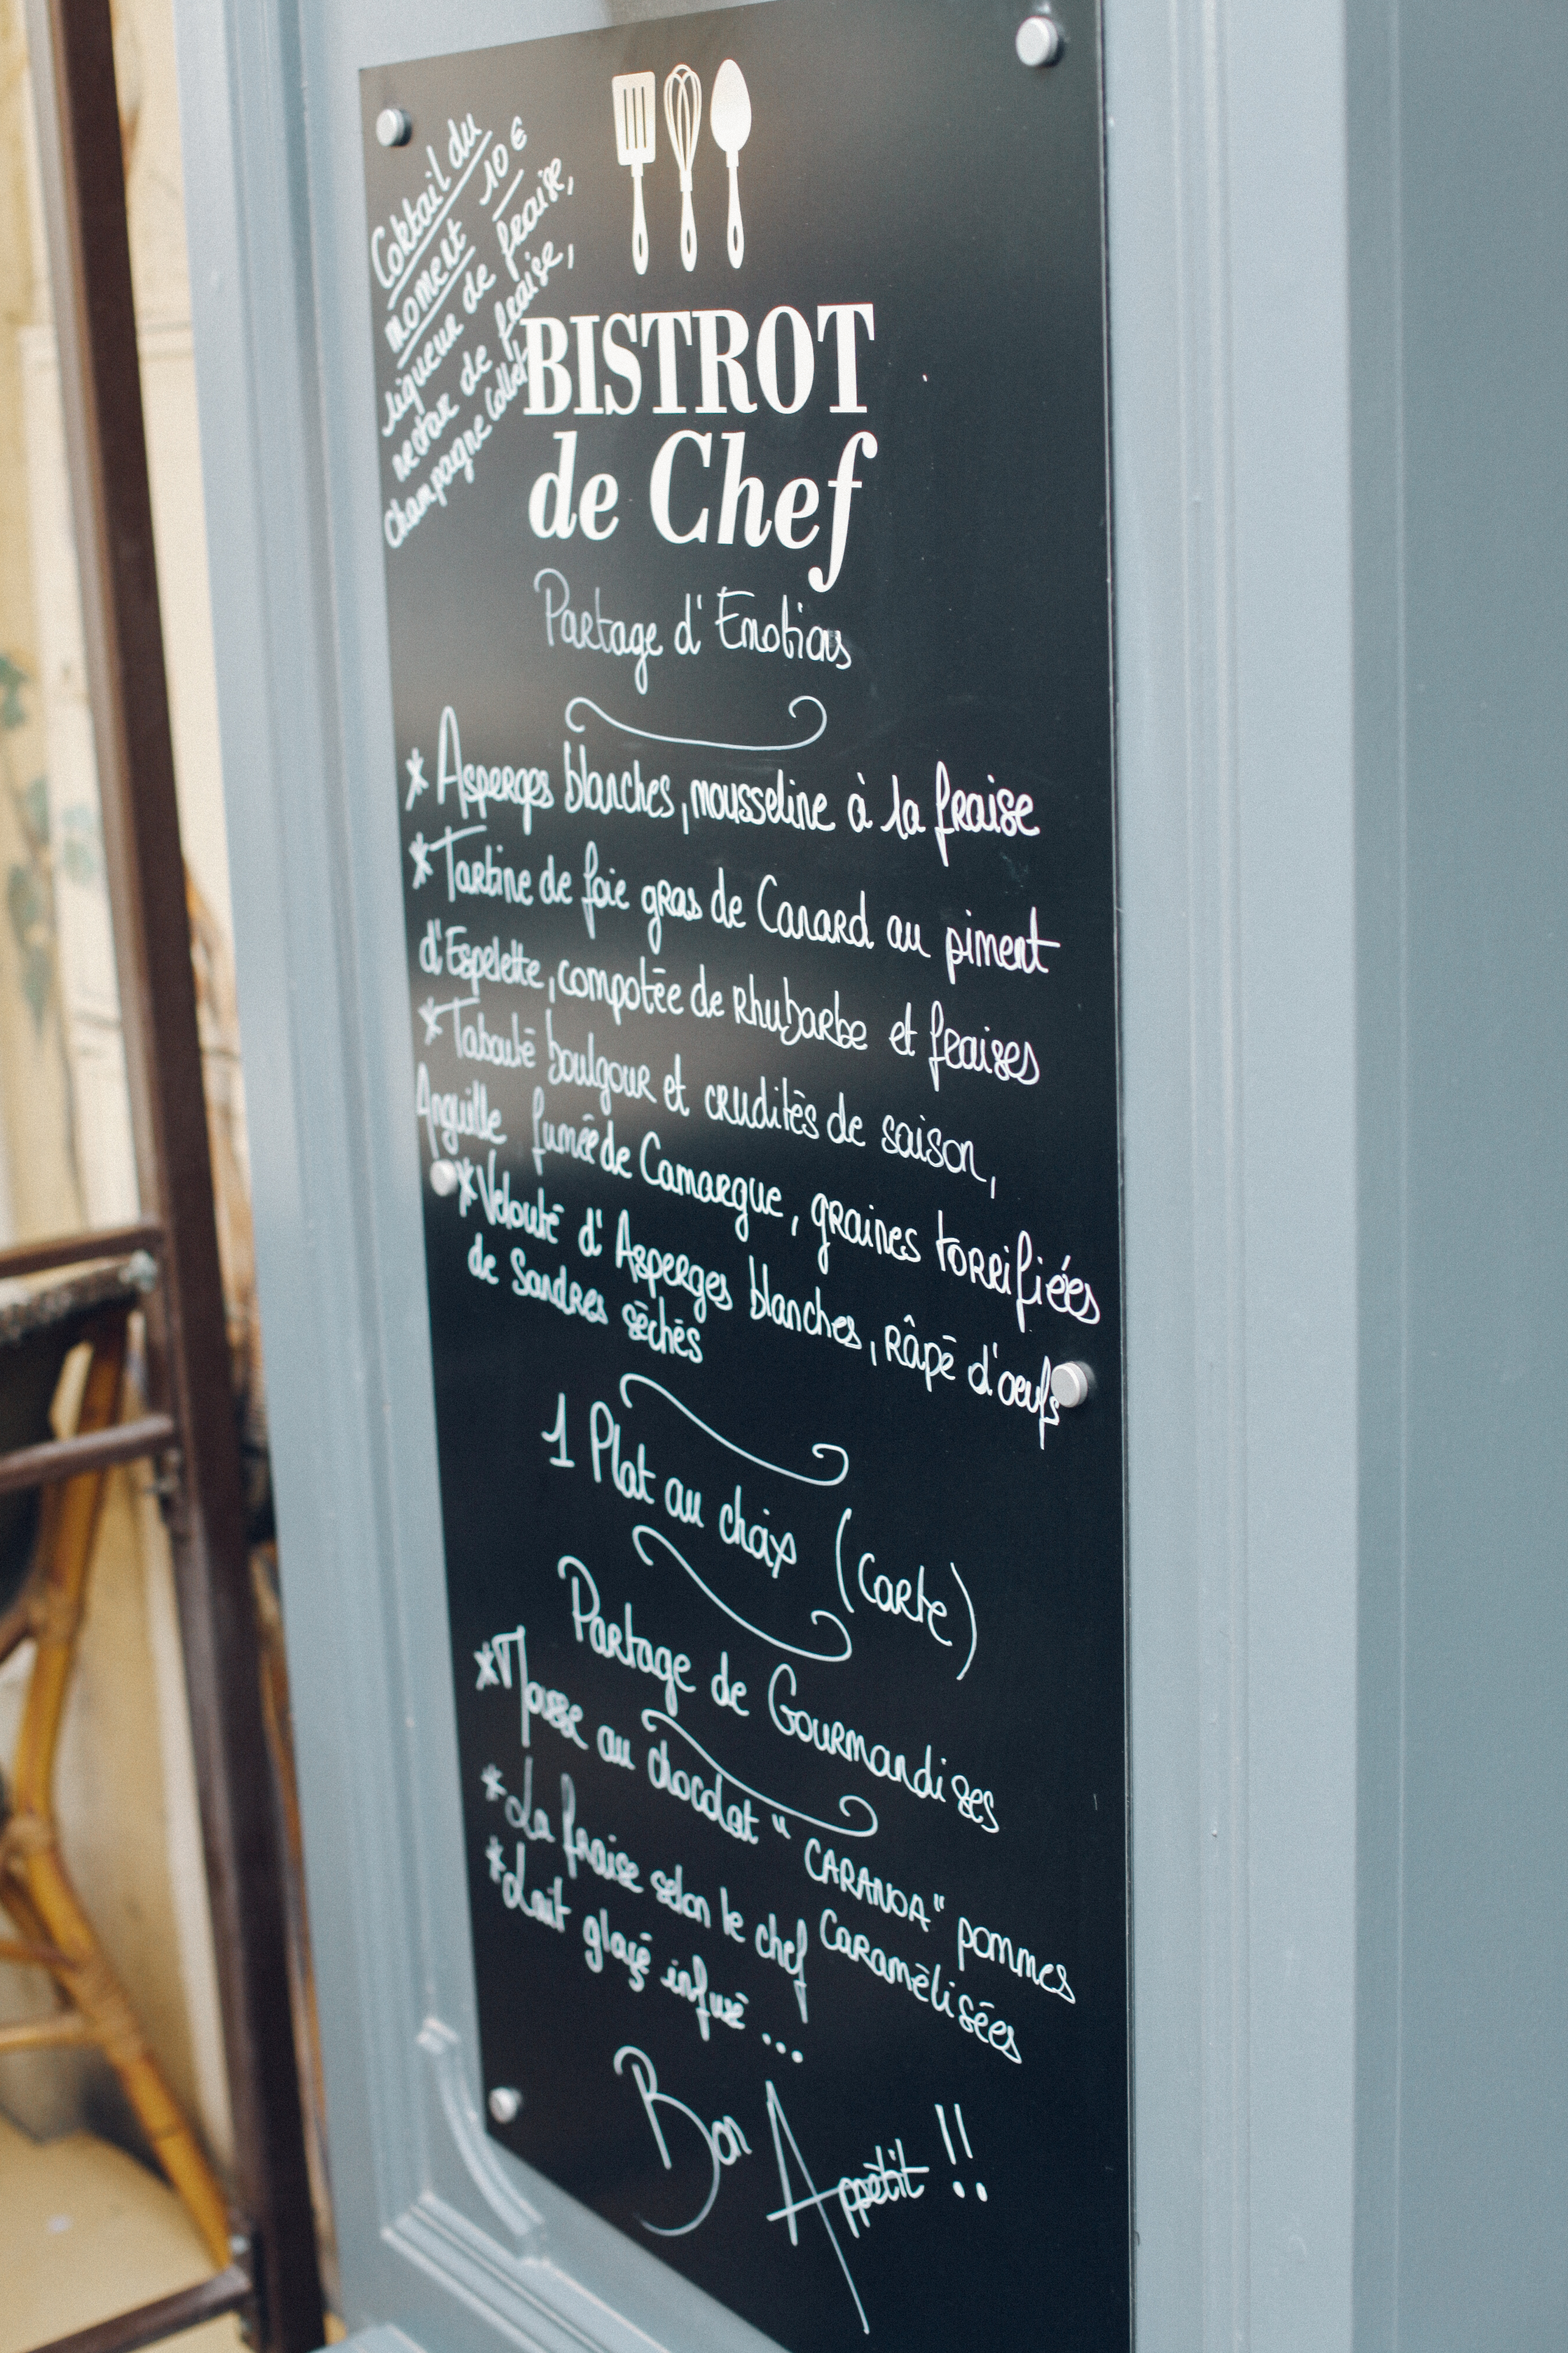 Coktail du
moment 10 €
liqueur de fraise,
nectar de fraise,
Champagne Collet
BISTROT
de Chef
Partage d'Emotions
* Asperges blanches, mousseline à la fraise
* Tartine de foie gras de Canard au piment
d'Espelette, compotée de rhubarbe et fraises
* Taboulé boulgour et crudités de saison,
Anguille fumée de Camargue, graines torrifiées
* Velouté d'Asperges blanches, râpé d'oeufs
de Sandres séchés
1 Plat au choix (carte)
Partage de Gourmandises
* Mousse au chocolat "CARANOA" pommes
Caramélisées
* La fraise selon le chef
* Lait glaçé infusé ...
Bon Appétit !!